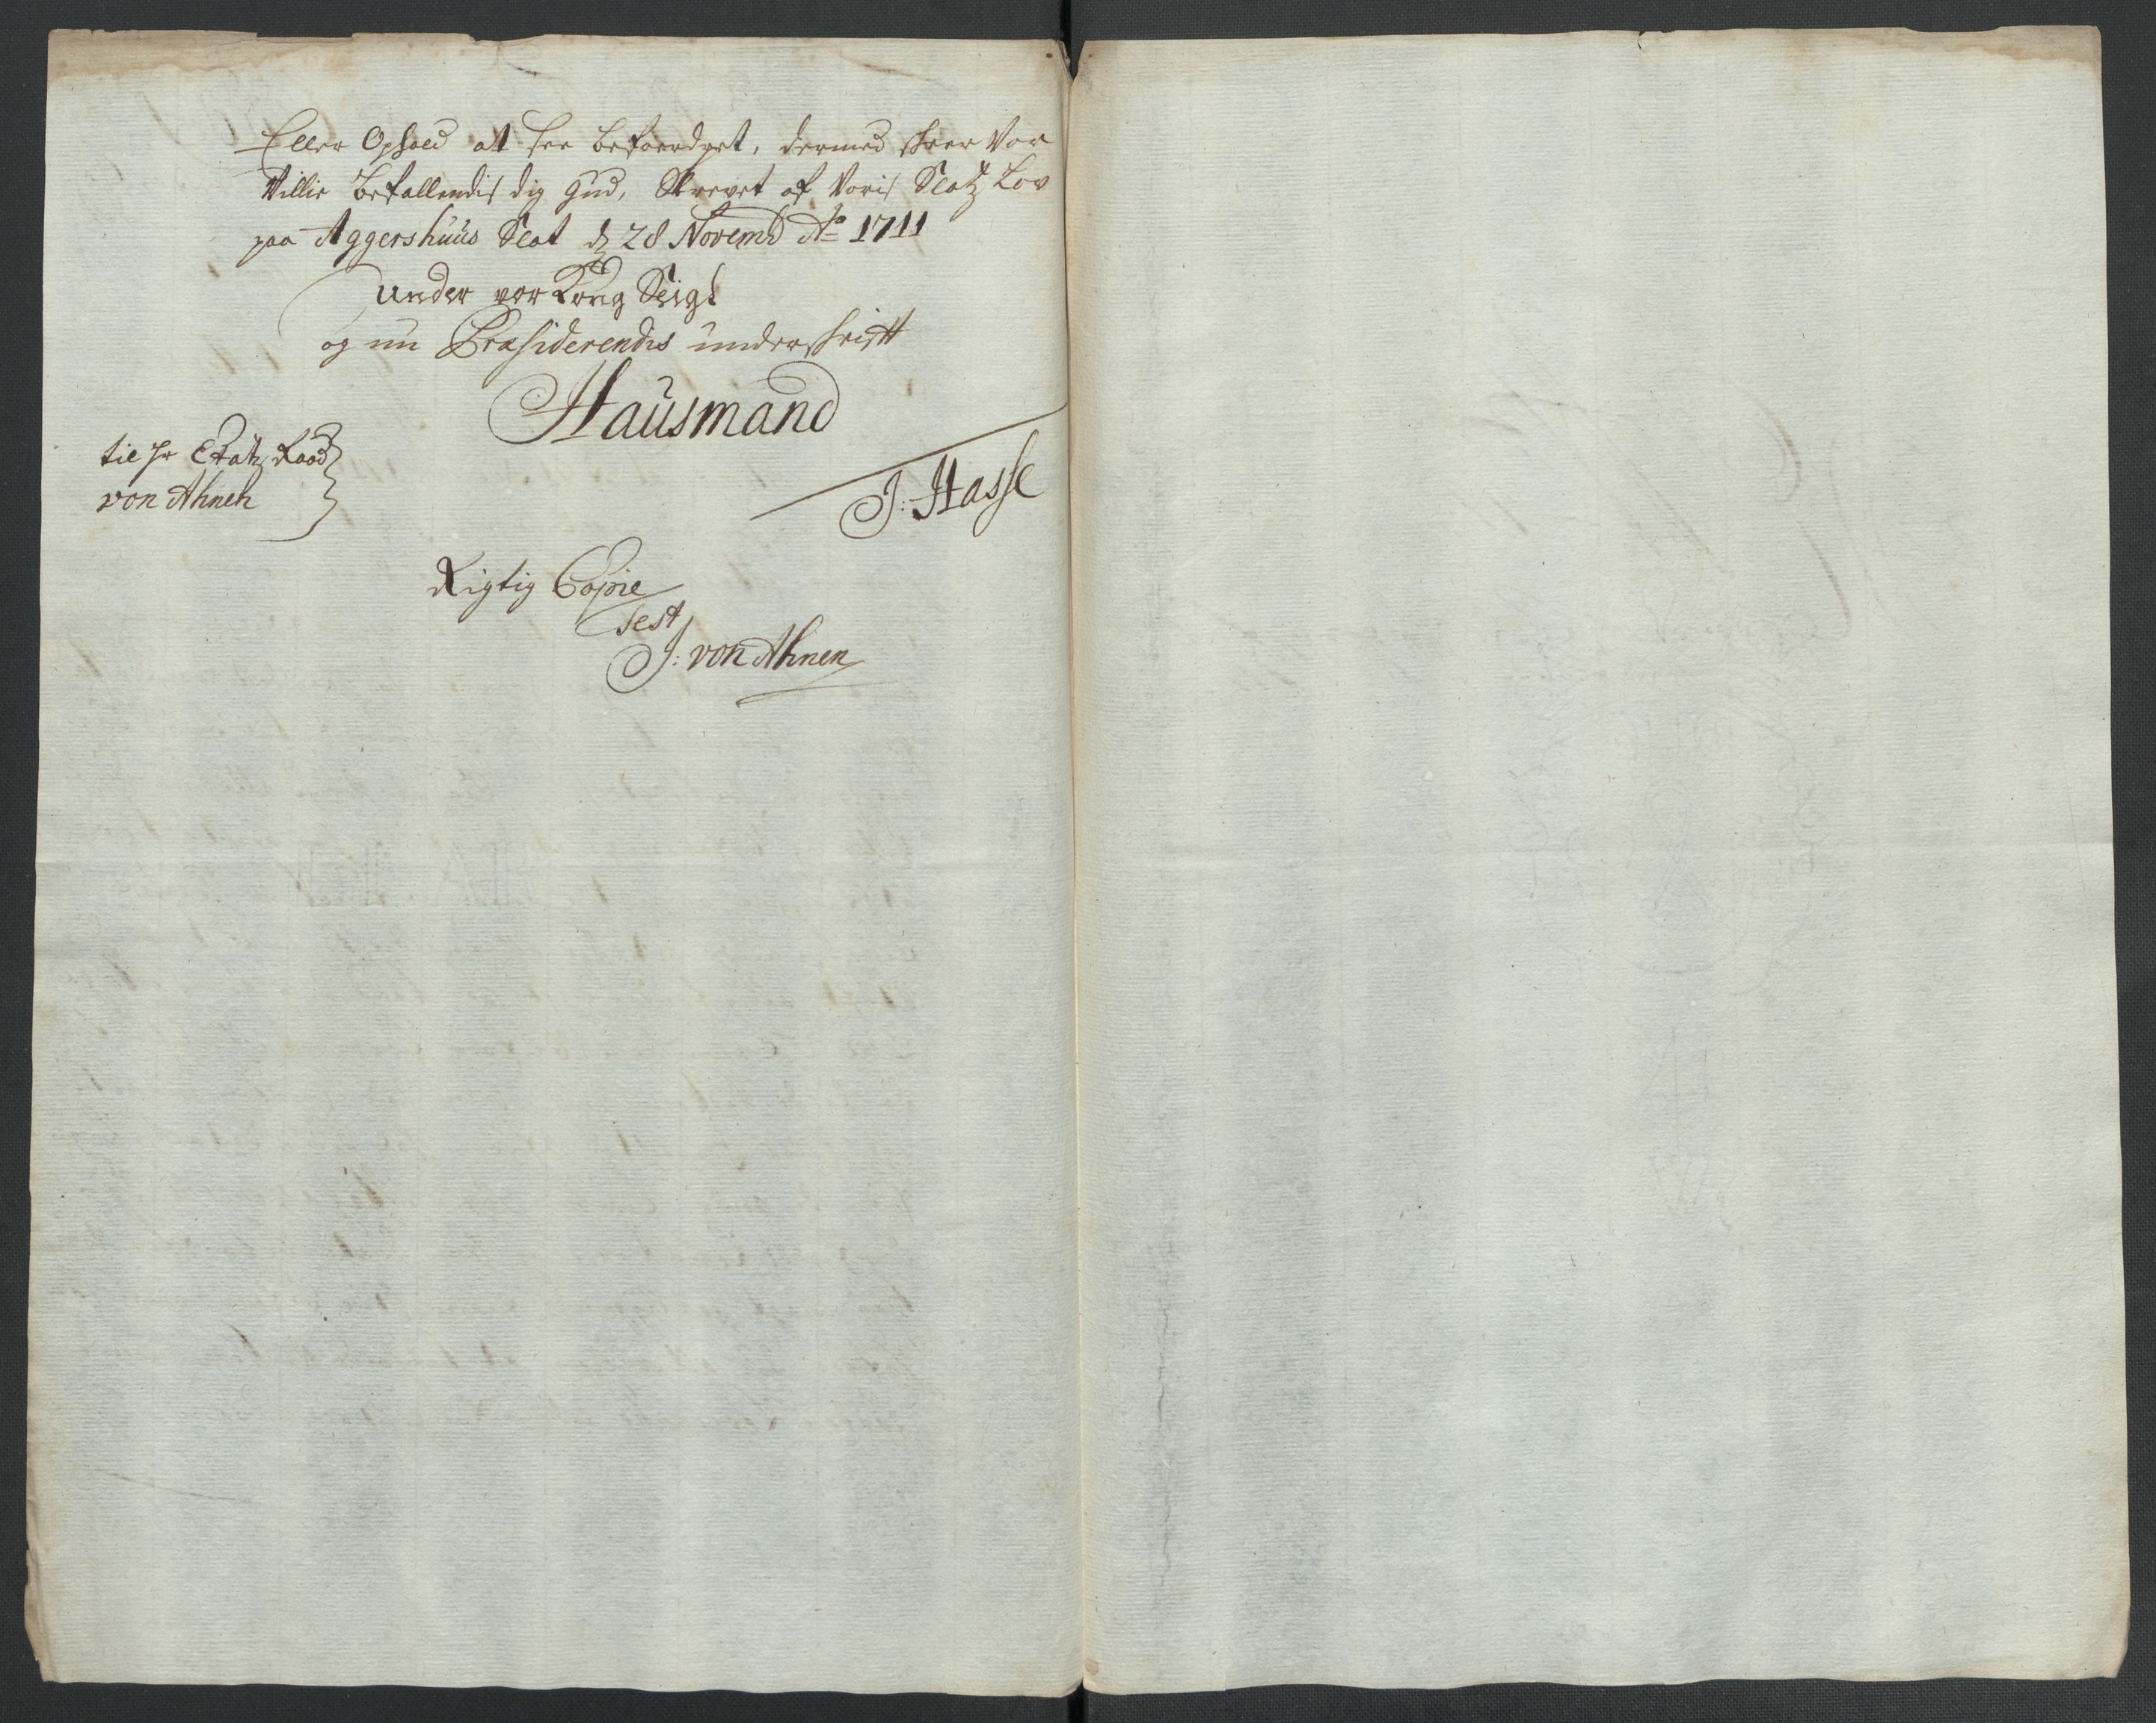 Eller Ophold at see befordret, dermed skeer Vor
Villie befallendis dig Gud, Skrevet af Voris Slotz Lov
paa Aggershuus Slot d 28 Novemb Ao 1711
Under vor Kong Seigl
og nu Præsiderendis underskrifft
Hausmand
til Hr Etatz Raad
von Ahnen
J: Hasse
Rigtig Copie
Test
J: von Ahnen